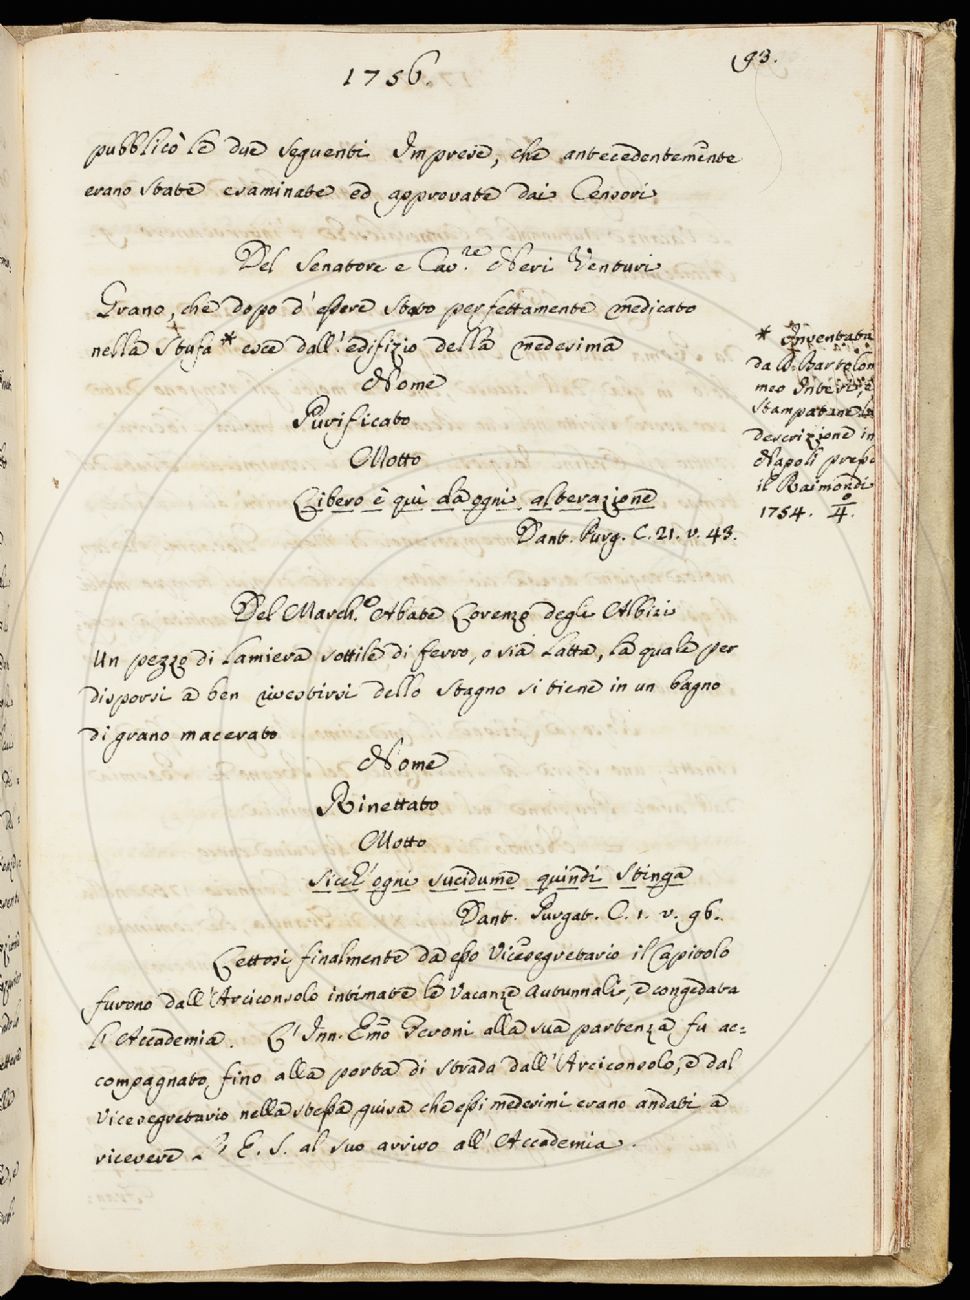 1756.
93.
pubblicò le due seguenti Imprese, che antecedentemente
erano state esaminate ed approvate dai Censori
Del Senatore e Cav.re Neri Venturi
Grano, che dopo d'essere stato perfettamente medicato
nella Stufa * esce dall'edifizio della medesima
Nome
Purificato
Motto
Libero è quì da ogni alterazione
Dant. Purg. C. 21. v. 43.
* Inventata
da D. Bartolom
meo Intieri, e
stampatane la
descrizione in
Napoli presso
il Raimondi
1754. in 4.o
Del March.e Abate Lorenzo degli Albizi
Un pezzo di Lamiera sottile di ferro, o sia Latta, la quale per
disporsi a ben rivestirsi dello stagno si tiene in un bagno
di grano macerato
Nome
Rinettato
Motto
Sicch'ogni sucidume quindi stinga
Dant. Purgat. C. 1. v. 96.
Lettosi finalmente da esso Vicesegretario il Capitolo
furono dall'Arciconsolo intimate le Vacanze Autunnali, e congedata
l'Accademia. L'Inn. Emo Peroni alla sua partenza fu ac=
compagnato, fino alla porta di strada dall'Arciconsolo, e dal
Vicesegretario nella stessa guisa che essi medesimi erano andati a
ricevere E. S. al suo arrivo all'Accademia.